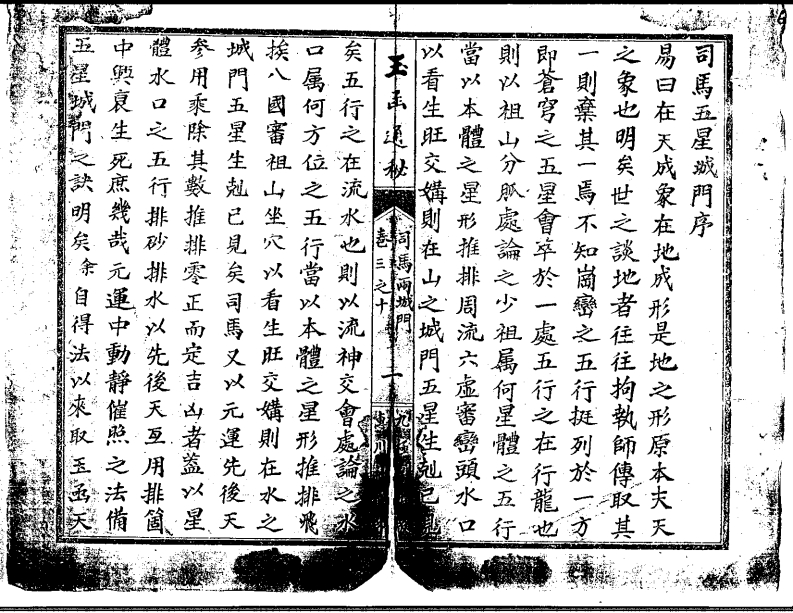 司馬五星城門序
易曰在天成象在地成形是地之形原本夫天
之象也明矣世之談地者往往拘執師傳取其
一則棄其一焉不知崗巒之五行挺列於一方
即蒼穹之五星會萃於一處五行之在行龍也
則以祖山分脈處論之少祖属何星體之五行
當以本體之星形推排周流六虛審巒頭水口
以看生旺交媾則在山之城門五星生剋已見
玉函通秘
司馬兩城門
卷三之十
一
矣五行之在流水也則以流神交會處論之水
口属何方位之五行當以本體之星形推排飛
挨八國審祖山坐穴以看生旺交媾則在水之
城門五星生剋已見矣司馬又以元運先後天
參用乘除其數推排零正而定吉凶者蓋以星
體水口之五行排砂排水以先後天互用排箇
中興衰生死庶幾哉元運中動靜催照之法備
五星城門之訣明矣余自得法以來取玉函天